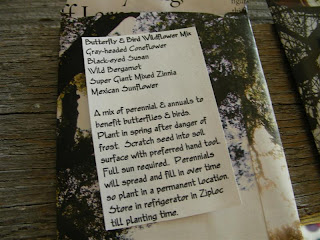 Butterfly & Bird Wildflower Mix
Gray-headed Coneflower
Black-eyed Susan
Wild Bergamot
Super Giant Mixed Zinnia
Mexican Sunflower
A mix of perennial & annuals to
benefit butterflies & birds.
Plant in spring after danger of
frost. Scratch seed into soil
surface with preferred hand tool.
Full sun required. Perennials
will spread and fill in over time
so plant in a permanent location.
Store in refrigerator in Ziploc
till planting time.